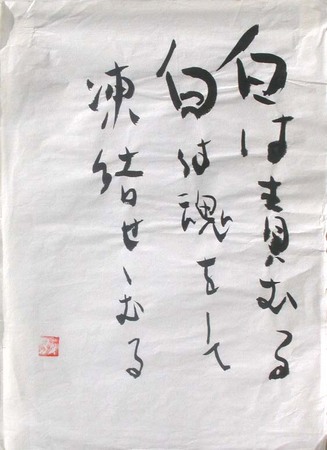 白は責むる
白は魂をして
凍結せしむる